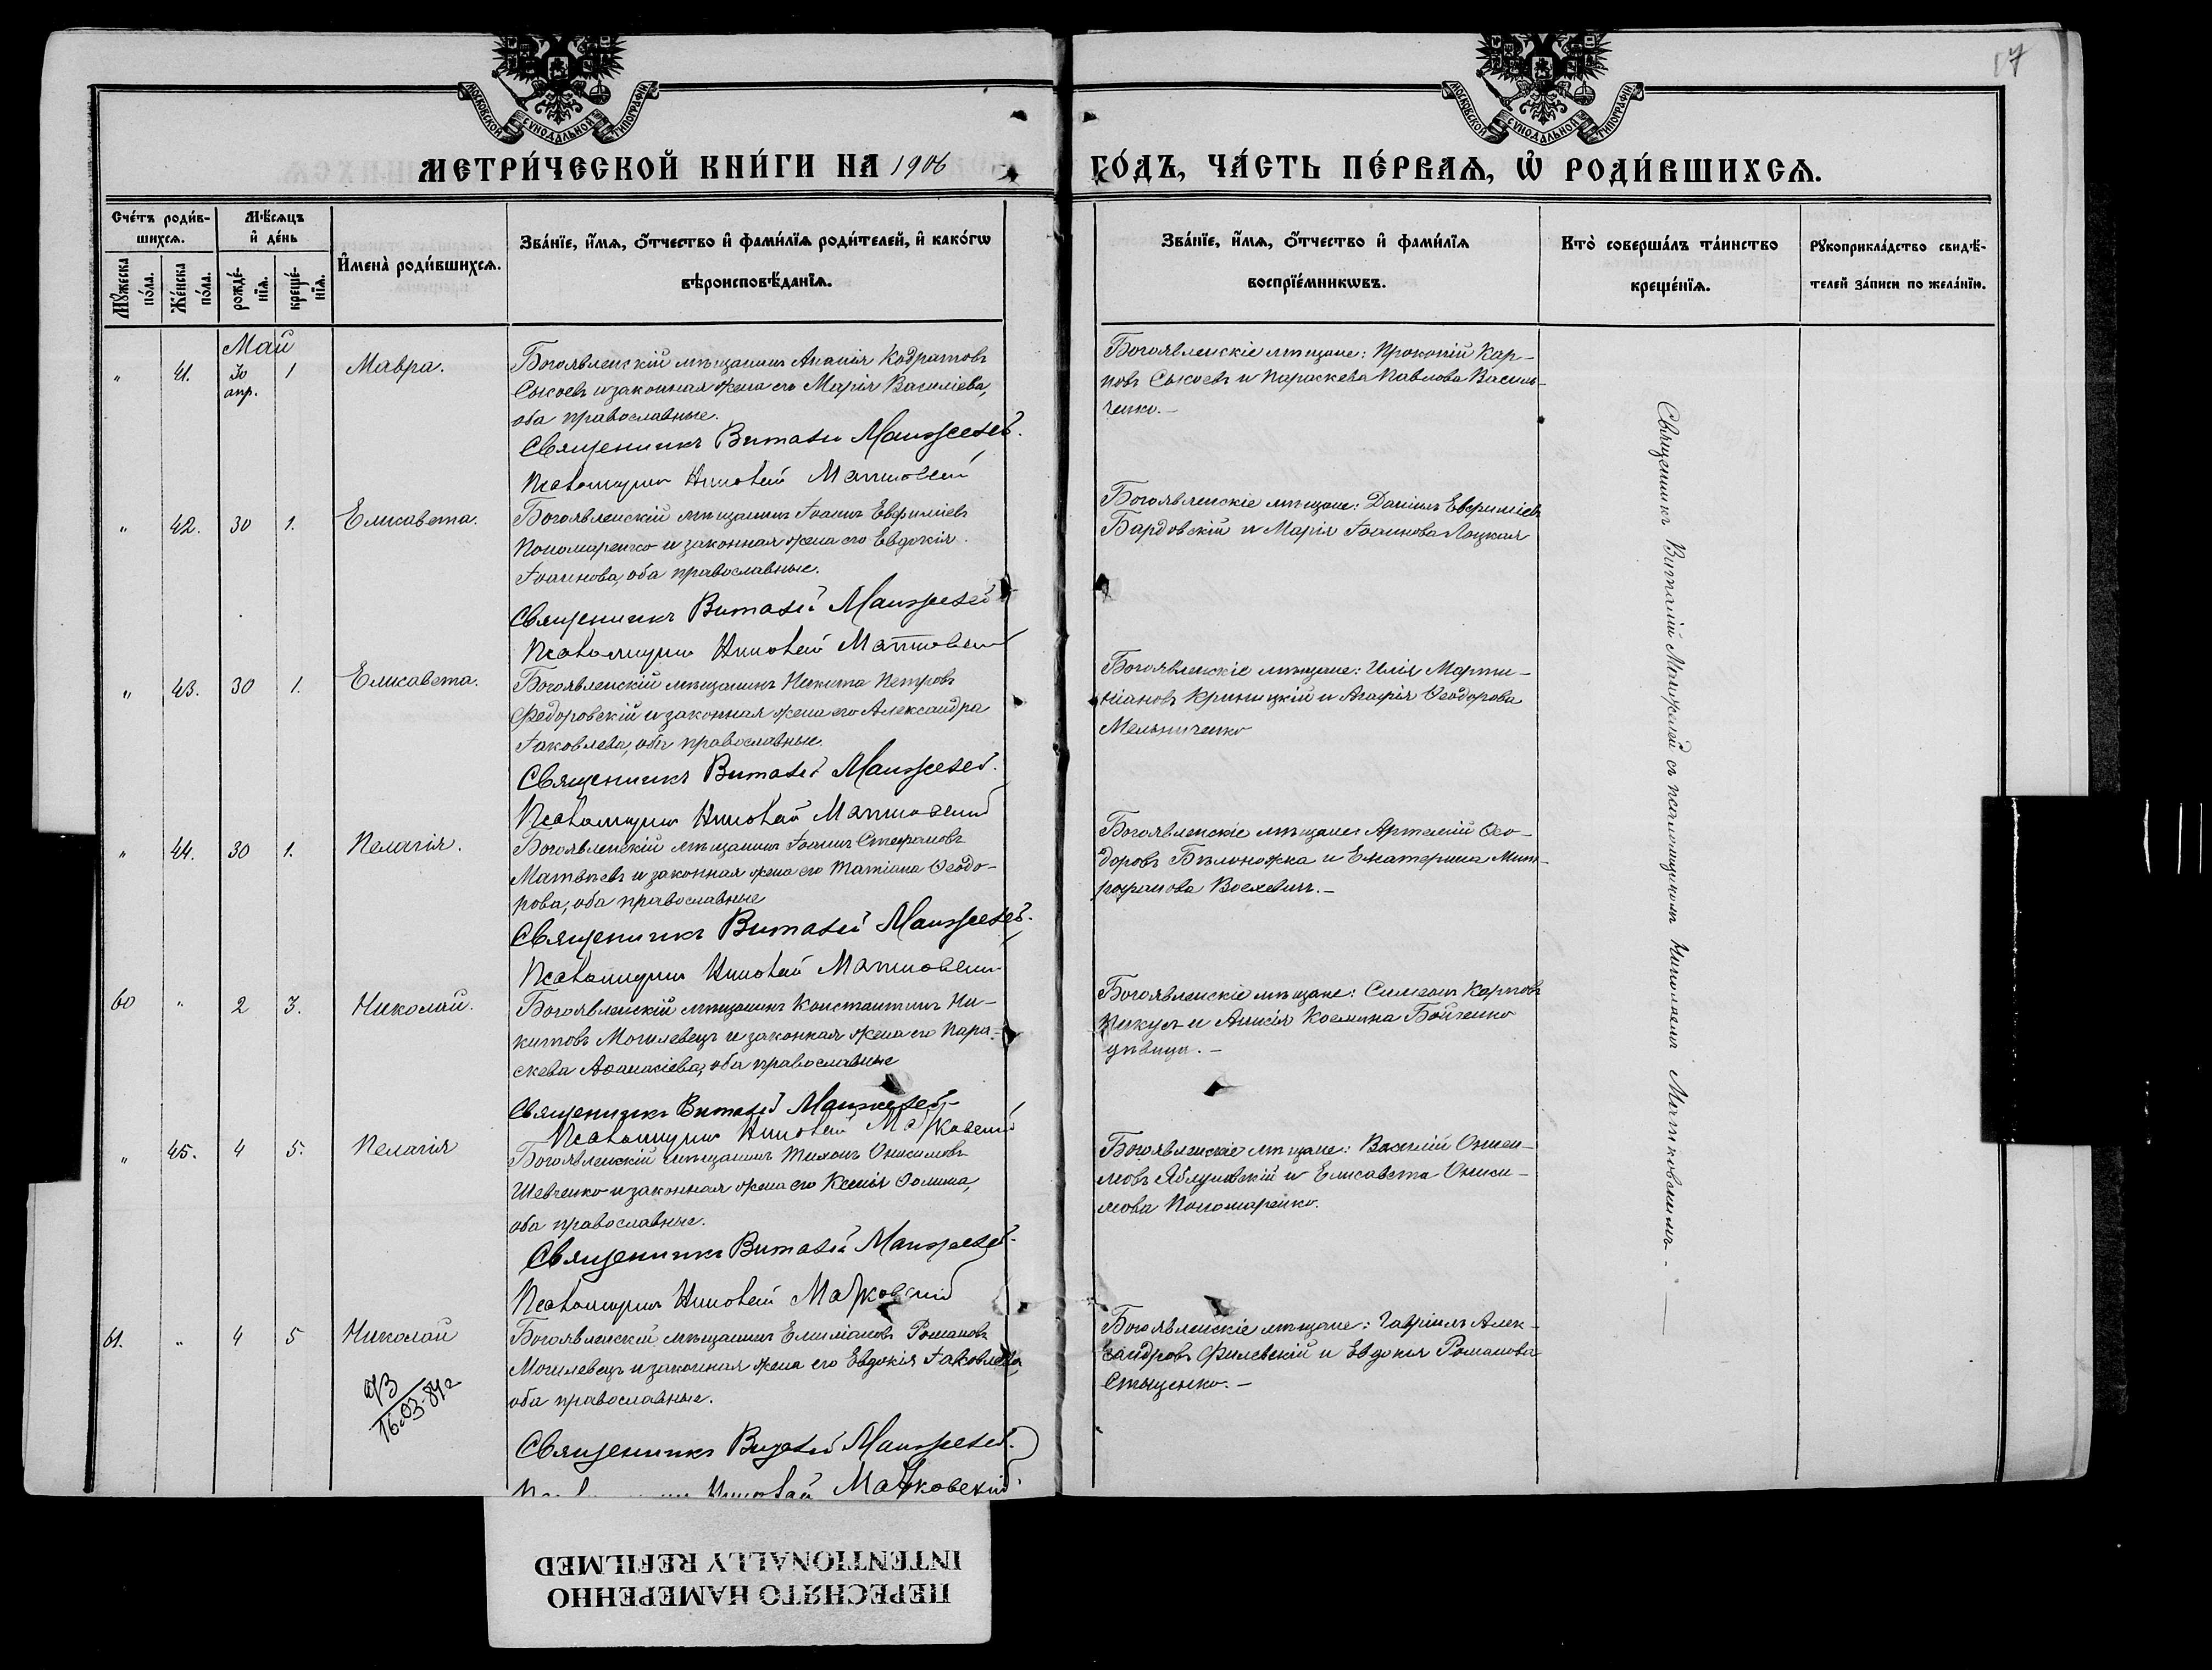 17
МОСКОВСКОЙ СѴНОДАЛЬНОЙ ТИПОГРАФІИ
МОСКОВСКОЙ СѴНОДАЛЬНОЙ ТИПОГРАФІИ
МЕТРИ́ЧЕСКОЙ КНИ́ГИ НА 1906
ГО́ДЪ, ЧА́СТЬ ПЕ́РВАѦ, Ѡ҆ РОДИ́ВШИХСѦ.
Сче́тъ роди́в-
шихсѧ.
Мꙋ́жеска по́ла.
Же́нска по́ла.
Мѣ́сѧцъ
и҆ де́нь
рожде́-
нїѧ.
креще́-
нїѧ.
И҆мена̀ роди́вшихсѧ.
Зва́нїе, и҆́мѧ, ѻ҆́тчество и҆ фами́лїѧ роди́телей, и҆ како́гѡ
вѣроисповѣ́данїѧ.
Зва́нїе, и҆́мѧ, ѻ҆́тчество и҆ фами́лїѧ
воспрїе́мникѡвъ.
Кто̀ соверша́лъ та́инство
креще́нїѧ.
Рꙋкоприкла́дство свидѣ́-
телей за́писи по жела́нїю.
Май
" 41. 30 апр. 1 Мавра.
Богоявленскій мѣщанинъ Ананія Кодратовъ
Сысоевъ и законная жена его Марія Василіева,
оба православные.
Священникъ Виталий Манжелей.
Псаломщикъ Николай Матковский
Богоявленскіе мѣщане: Прокопій Кар-
повъ Сысоевъ и Параскева Павлова Василь-
ченко.-
" 42. 30 1. Елисавета.
Богоявленскій мѣщанинъ Іоаннъ Евфиміевъ
Пономаренко и законная жена его Евдокія
Іоаннова, оба православные.
Священникъ Виталий Манжелей
Псаломщикъ Николай Матковский
Богоявленскіе мѣщане: Даніилъ Евфиміевъ
Бардовскій и Марія Іоаннова Лоцкая
" 43. 30 1. Елисавета.
Богоявленскій мѣщанинъ Никита Петровъ
Федоровскій и законная жена его Александра
Іаковлева, оба православные.
Священникъ Виталий Манжелей.
Псаломщикъ Николай Матковский
Богоявленскіе мѣщане: Илія Марти-
ніановъ Криницкій и Агафія Ѳеодорова
Мельниченко
" 44. 30 1. Пелагія.
Богоявленскій мѣщанинъ Іоаннъ Стефановъ
Матвѣевъ и законная жена его Татіана Ѳеодо-
рова, оба православные
Священникъ Виталий Манжелей.
Псаломщикъ Николай Матковский
Богоявленскіе мѣщане: Артемій Ѳео-
доровъ Бѣлоножка и Екатерина Мит-
рофанова
60 " 2 3. Николай.
Богоявленскій мѣщанинъ Константинъ Ни-
китовъ Могилевецъ и законная жена его Пара-
скева Аѳанасіева, оба православные
Священникъ Виталий Манжелей
Псаломщикъ Николай Матковский
Богоявленскіе мѣщане: Симеонъ Карповъ
Пикусъ и Анисія Космина Бойченко
дѣвица.-
" 45. 4 5. Пелагія
Богоявленскій мѣщанинъ Тихонъ Онисимовъ
Шевченко и законная жена его Ксенія Ѳомина,
оба православные.
Священникъ Виталий Манжелей.
Псаломщикъ Николай Матковский
Богоявленскіе мѣщане: ВасилійОниси-
мовъ Яблуновскій и Елисавета Ониси-
мова Пономаренко.
61. " 4 5 Николай
16.03.84г
Богоявленскій мѣщанинъ Емиліановъ Романовъ
Могилевецъ и законная жена его Евдокія Іаковлева,
оба православные.
Священникъ Виталий Манжелей.
Николай Матковский
Богоявленскіе мѣщане: Гавріилъ Алек-
сандровъ Филевскій и Евдокія Романова
Стыценко.-
Священникъ Виталій Манжелей съ псаломщикомъ Николаемъ Матковскимъ.-
ПЕРЕСНЯТО НАМЕРЕННО
INTENTIONALLY REFILMED